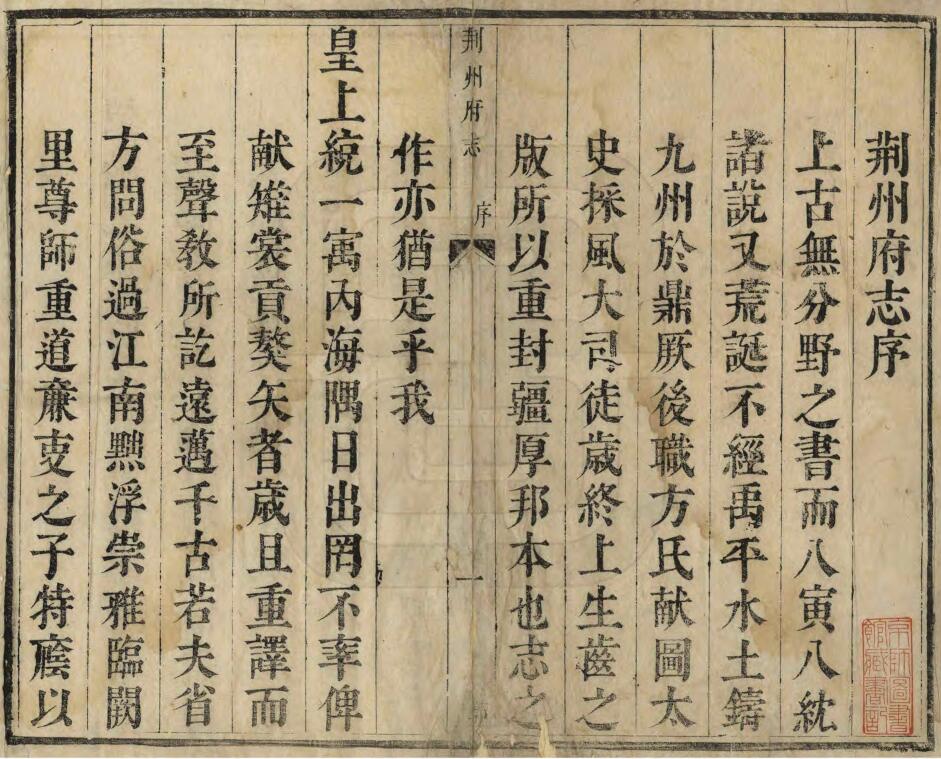 荆州府志序
上古無分野之書而八寅八紘
諸説又荒誕不經禹平水土鑄
九州於鼎厥後職方氏献圖太
史採風大司徒歳終上生齒之
版所以重封疆厚邦本也志之
作亦猶是乎我
荆州府志
序
一
皇上統一寓内海隅日出罔不率俾
献雉裳貢獒矢者歳且重譯而
至聲敎所訖遠邁千古若夫省
方問俗過江南黜浮崇雅臨闕
里尊師重道㢘吏之子特廕以